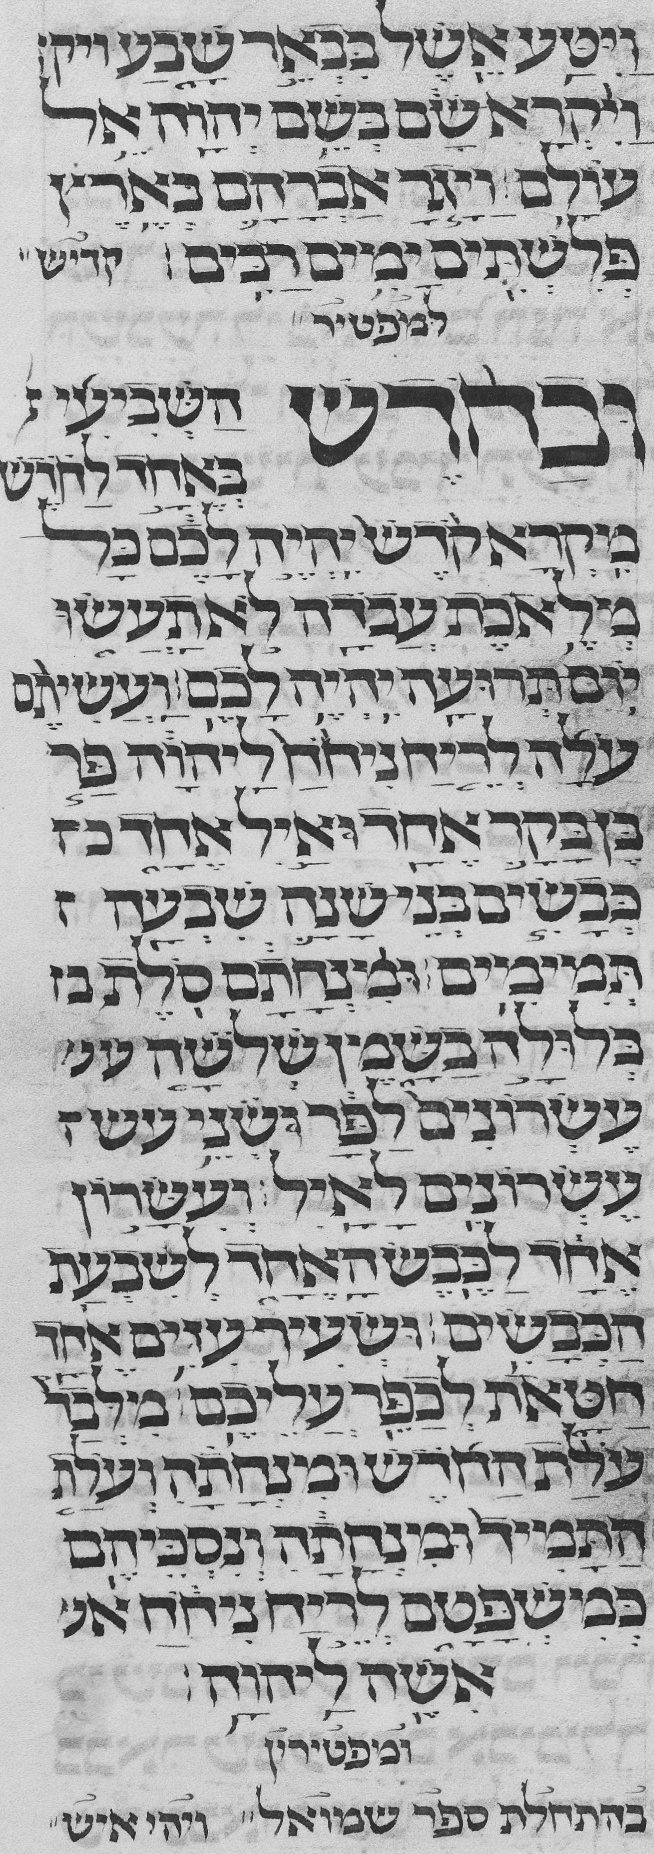 ויטע אשל בבאר שבע ויק
ויקרא שם בשם יהוה אל
עולם : ויגר אברהם בארץ
פלשתים ימים רבים : קדיש
למפטיר
ובחדש השביעי
באחד לחדש
מקרא קדש יהיה לכם כל
מלאכת עבדה לא תעשו
יום תרועה יהיה לכם : ועשיתם
עלה לריח ניחח ליהוה פר
בן בקר אחד ואיל אחד כ
כבשים בני שנה שבעה
תמימים : ומנחתם סלת ב
בלולה בשמן שלשה ע
עשרונים לפר ושני עש
עשרונים לאיל : ועשרון
אחד לכבש האחד לשבעת
הכבשים : ושעיר עזים אחד
חטאת לכפר עליכם : מלבד
עלת החדש ומנחתה ועלת
התמיד ומנחתה ונסכיהם
כמשפטם לריח ניחח א
אשה ליהוה :
ומפטירין
בהתחלת ספר שמואל ויהי איש